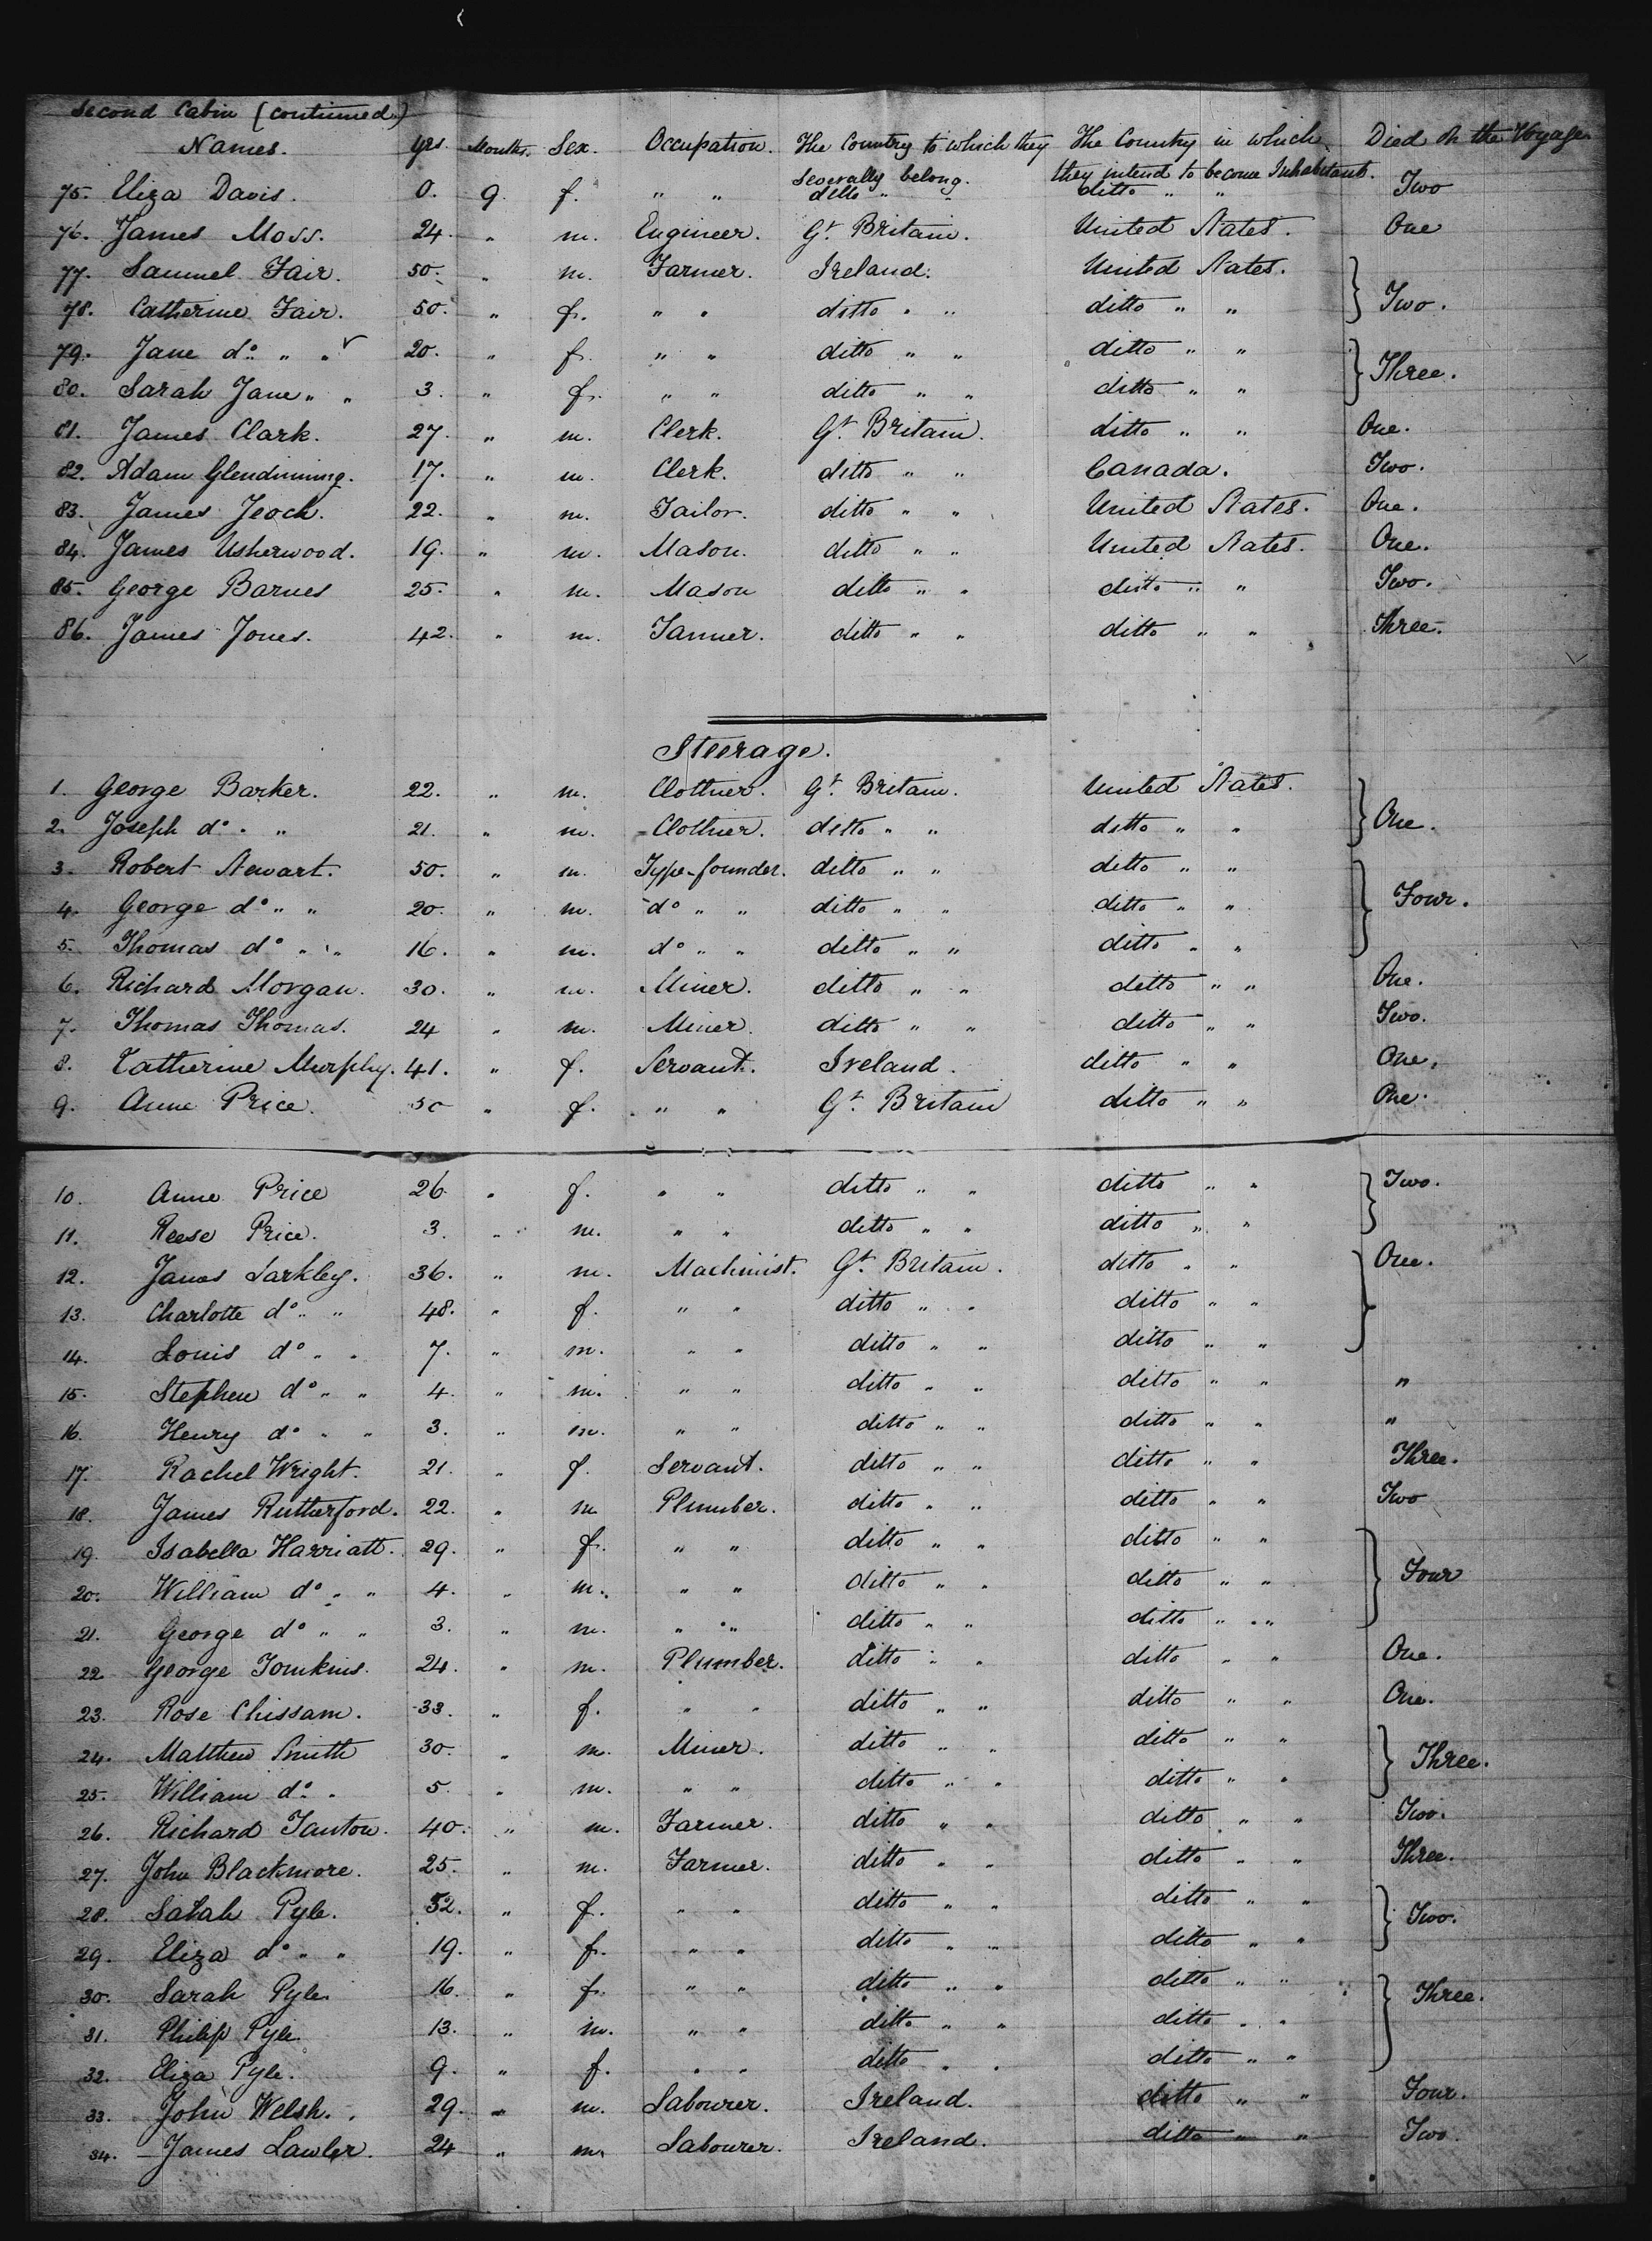 Second Cabin (continued)
Names. Yrs Months. Sex. Occupation. The Country to which they severally belong. The Country in which they intend to become Inhabitants. Died on the Voyage
75. Eliza Davis. 0. 9. f. " " ditto " " ditto " " Two
76. James Moss. 24. " m. Engineer. Gt. Britain. United States. One
77. Samuel Fair. 50. " m. Farmer. Ireland. United States.
78. Catherine Fair. 50. " f. " " ditto " " ditto " " } Two.
79. Jane do. " " 20. " f. " " ditto " " ditto " "
80. Sarah Jane " " 3. " f. " " ditto " " ditto " " } Three.
81. James Clark. 27. " m. Clerk. Gt. Britain. ditto " " One.
82. Adam Glendinning. 17. " m. Clerk. ditto " " Canada. Two.
83. James Jeoch. 22. " m. Tailor. ditto " " United States. One.
84. James Usherwood. 19. " m. Mason. ditto " " United States. One.
85. George Barnes 25. " m. Mason ditto " " ditto " " Two.
86. James Jones. 42. " m. Tanner. ditto " " ditto " " Three.
Steerage.
1. George Barker. 22. " m. Clothier. Gt. Britain. United States.
2. Joseph do. " 21. " m. Clothier. ditto " " ditto " " } One.
3. Robert Stewart. 50. " m. Type-founder. ditto " " ditto " "
4. George do " " 20. " m. do " " ditto " " ditto " " } Four.
5. Thomas do " " 16. " m. do " " ditto " " ditto " "
6. Richard Morgan. 30. " m. Miner. ditto " " ditto " " One.
7. Thomas Thomas. 24 " m. Miner. ditto " " ditto " " Two.
8. Catherine Murphy. 41. " f. Servant. Ireland. ditto " " One.
9. Anne Price. 50 " f. " " Gt. Britain ditto " " One.
10. Anne Price 26. " f. " " ditto " " ditto " " } Two.
11. Reese Price. 3. " m. " " ditto " " ditto " "
12. James Larkley. 36. " m. Machinist. Gt. Britain. ditto " " } One.
13. Charlotte do " " 48. " f. " " ditto " " ditto " "
14. Louis do " " 7. " m. " " ditto " " ditto " "
15. Stephen do " " 4. " m. " " ditto " " ditto " " "
16. Henry do " " 3. " m. " " ditto " " ditto " " "
17. Rachel Wright. 21. " f. Servant. ditto " " ditto " " Three.
18. James Rutherford. 22. " m Plumber. ditto " " ditto " " Two
19. Isabella Harriatt. 29. " f. " " ditto " " ditto " "
20. William do " " 4. " m. " " ditto " " ditto " " } Four
21. George do " " 3. " m. " " ditto " " ditto " "
22 George Tomkins. 24. " m. Plumber. ditto " " ditto " " One.
23. Rose Chissam. 33. " f. " " ditto " " ditto " " One.
24. Matthew Smith 30. " m. Miner. ditto " " ditto " " } Three.
25. William do. " 5. " m. " " ditto " " ditto " "
26. Richard Tanton. 40. " m. Farmer. ditto " " ditto " " Two.
27. John Blackmore. 25. " m. Farmer. ditto " " ditto " " Three.
28. Sarah Pyle. 52. " f. " " ditto " " ditto " " } Two.
29. Eliza do " " 19. " f. " " ditto " " ditto " "
30. Sarah Pyle. 16. " f. " " ditto " " ditto " " } Three.
31. Philip Pyle. 13. " m. " " ditto " " ditto " "
32. Eliza Pyle. 9. " f. " " ditto " " ditto " "
33. John Welsh. 29. " m. Labourer. Ireland. ditto " " Four.
34. James Lawler. 24 " m. Labourer. Ireland. ditto " " Two.